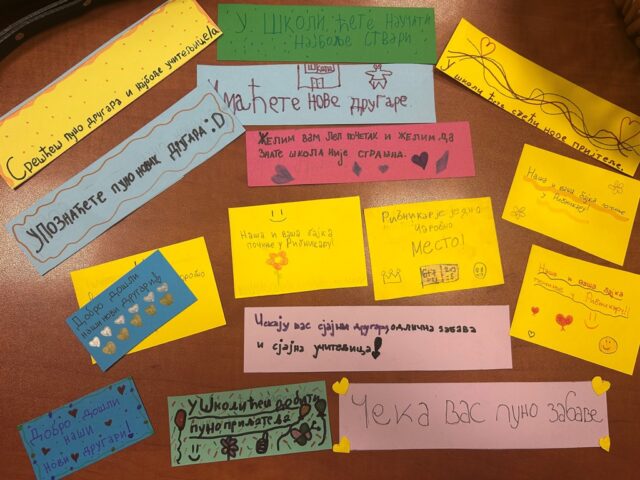 У ШКОЛИ, ЋЕТЕ НАУЧИТИ
НАЈБОЉЕ СТВАРИ
Срешћеш пуно другара и најбоље учитељице!
ШКОЛА
У МА ЋЕТЕ НОВЕ ДРУГАРЕ.
У школи ћеш срећи нове пријатеље.
УПОЗНАЋЕТЕ ПУНО НОВИХ ДРУГАРА :D
ЖЕЛИМ ВАМ ЛЕП ПОЧЕТАК И ЖЕЛИМ ДА
ЗНАТЕ ШКОЛА НИЈЕ СТРАШНА.
Наша и ваша бајка почиње
у Рибникару!
Наша и ваша бајка
почиње у Рибникару!
РИБНИКАР ЈЕ ЈЕДНО
ЧАРОБНО
МЕСТО!
Наша и ваша бајка
почиње у Рибникару!!
Добро дошли
наши нови другари!
Чекају вас сјајни другари, одлична забава
и сјајна учитељица!
Добро дошли
наши
нови другари!
У ШКОЛИ ЋЕШ ДОБИТИ
ПУНО ПРИЈАТЕЉА
Чека вас пуно забаве